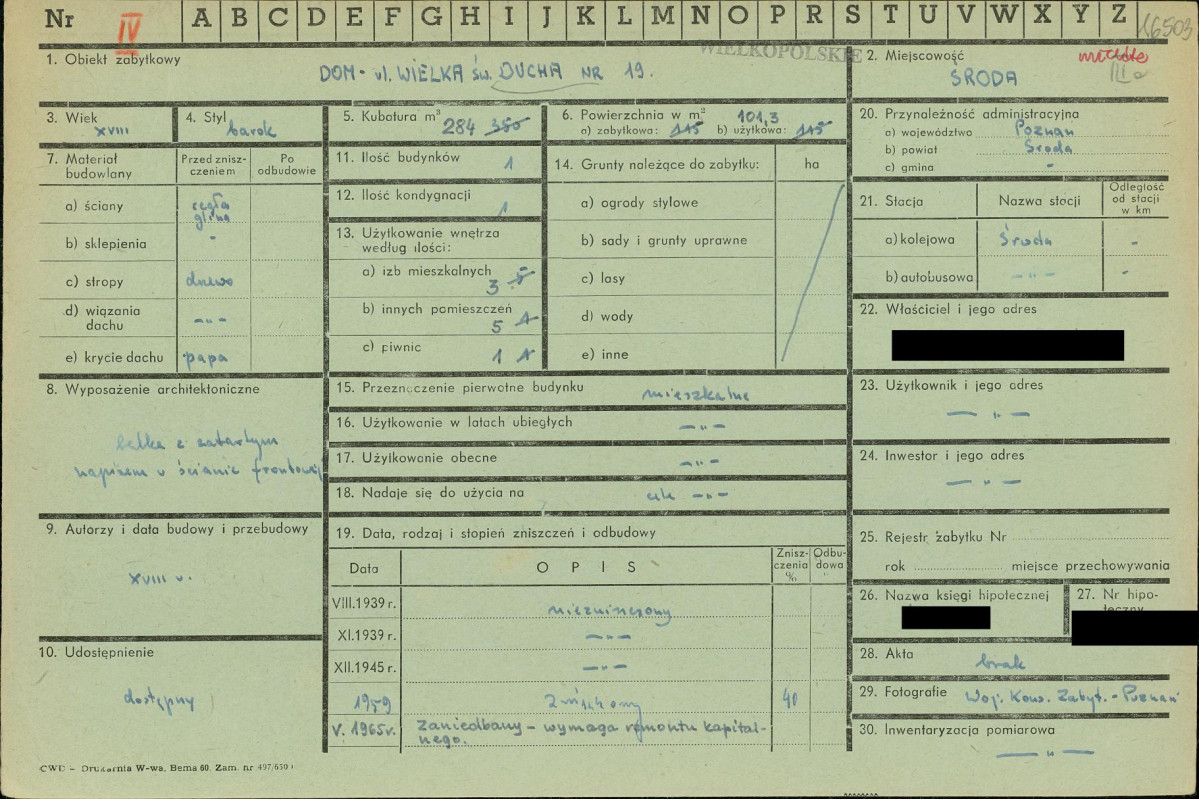 Nr IV A B C D E F G H I J K L M N O P R S T U V W X Y Z 16503
WIELKOPOLSKIE
1. Obiekt zabytkowy
DOM - ul. WIELKA św. DUCHA NR 19.
2. Miejscowość
ŚRODA
III a
3. Wiek
XVIII
4. Styl
barok
5. Kubatura m³
284 380
6. Powierzchnia w m²
101,3
a) zabytkowa: 115 b) użytkowa: 115
7. Materiał budowlany
Przed zniszczeniem
Po odbudowie
a) ściany cegła
glina
b) sklepienia -
c) stropy drewno
d) wiązania dachu -„-
e) krycie dachu papa
8. Wyposażenie architektoniczne
belka z zatartym
napisem w ścianie frontowej
9. Autorzy i data budowy i przebudowy
XVIII w.
10. Udostępnienie
dostępny
11. Ilość budynków 1
12. Ilość kondygnacji 1
13. Użytkowanie wnętrza
według ilości:
a) izb mieszkalnych 3 5
b) innych pomieszczeń 5 1
c) piwnic 1 1
14. Grunty należące do zabytku: ha
a) ogrody stylowe
b) sady i grunty uprawne
c) lasy
d) wody
e) inne
15. Przeznaczenie pierwotne budynku mieszkalne
16. Użytkowanie w latach ubiegłych -„-
17. Użytkowanie obecne -„-
18. Nadaje się do użycia na cele -„-
19. Data, rodzaj i stopień zniszczeń i odbudowy
Data OPIS Zniszczenia % Odbudowa
VIII.1939 r. niezniszczony
XI.1939 r. -„-
XII.1945 r. -„-
1959 zniszczony 40
V. 1965r. Zaniedbany - wymaga remontu kapital-
nego.
20. Przynależność administracyjna
a) województwo Poznań
b) powiat Środa
c) gmina -
21. Stacja Nazwa stacji Odległość od stacji w km
a) kolejowa Środa -
b) autobusowa -„- -
22. Właściciel i jego adres
23. Użytkownik i jego adres
-„-
24. Inwestor i jego adres
-„-
25. Rejestr zabytku Nr
rok miejsce przechowywania
26. Nazwa księgi hipotecznej
27. Nr hipo-
teczny
28. Akta
brak
29. Fotografie Woj. Kons. Zabyt. - Poznań
30. Inwentaryzacja pomiarowa
-„-
CWD — Drukarnia W-wa. Bema 60. Zam. nr 497/650